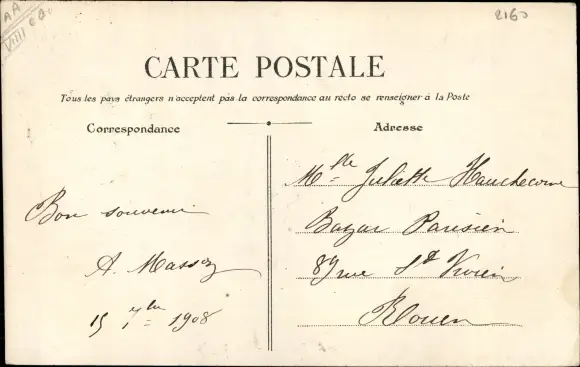 AA
VIII
2160
CARTE POSTALE
Tous les pays étrangers n'acceptent pas la correspondance au recto se renseigner à la Poste
Correspondance
Adresse
Bon souvenir
A. Massez
15 7bre 1908
Mlle Juliette Hauchecorne
Bazar Parisien
89 rue St Vivien
Rouen